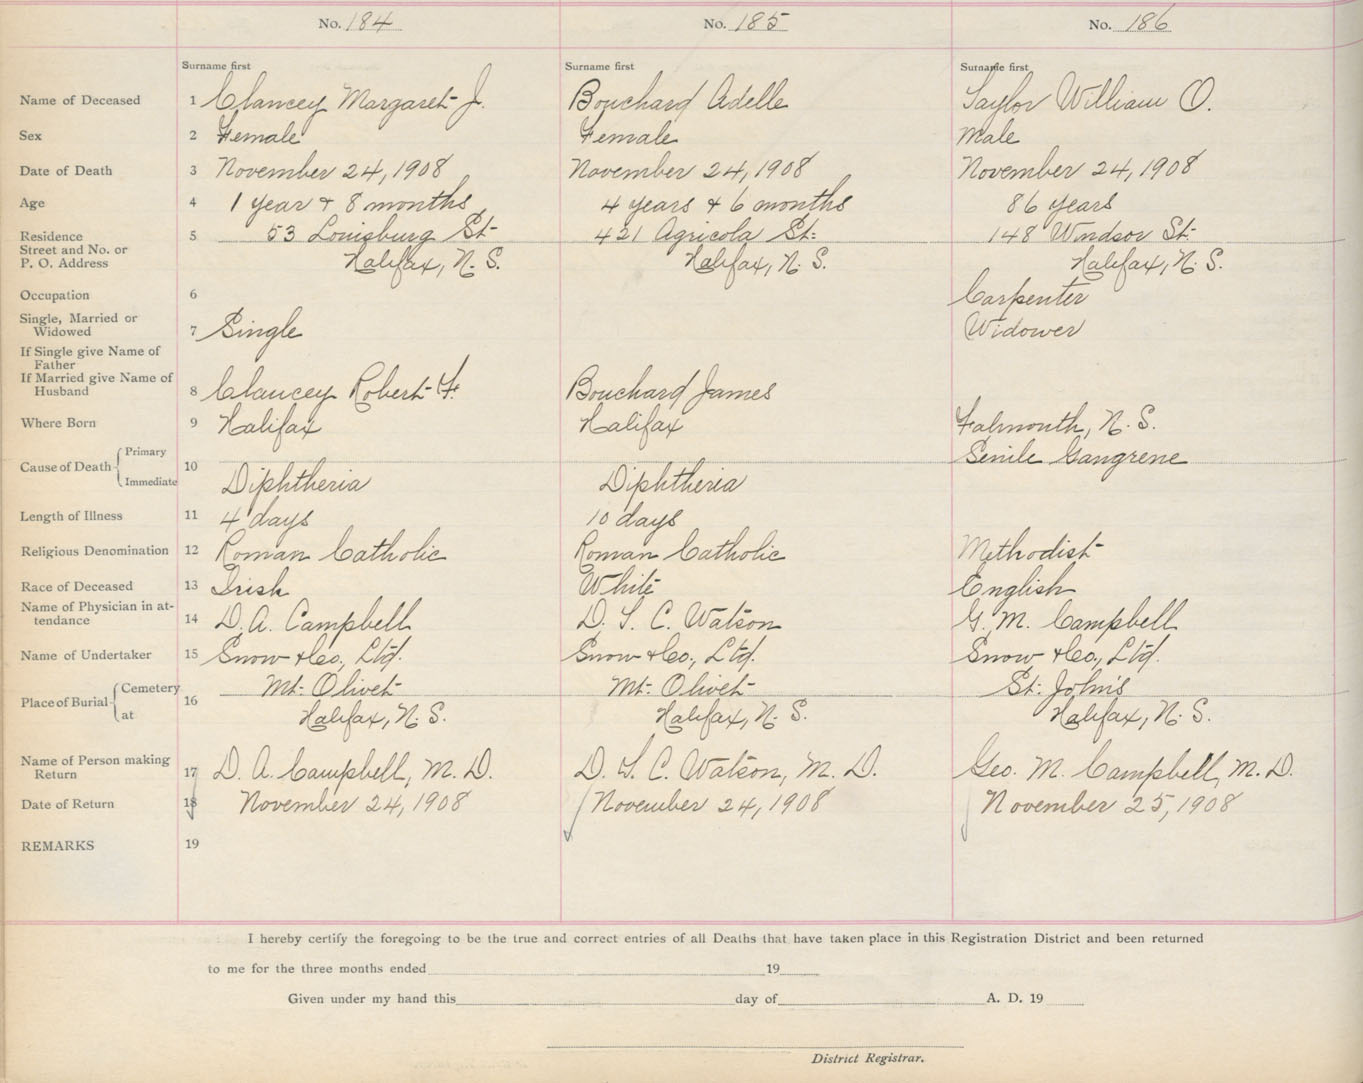 No. 184 No. 185 No. 186
Surname first Surname first Surname first
Name of Deceased 1 Clancey Margaret J. Bouchard Adelle Taylor William O.
Sex 2 Female Female Male
Date of Death 3 November 24, 1908 November 24, 1908 November 24, 1908
Age 4 1 year & 8 months 4 years & 6 months 86 years
Residence 5 53 Louisburg St. 421 Agricola St. 148 Windsor St.
Street and No. or
P. O. Address Halifax, N. S. Halifax, N. S. Halifax, N. S.
Occupation 6 Carpenter
Single, Married or
Widowed 7 Single Widower
If Single give Name of
Father
If Married give Name of
Husband 8 Clancey Robert F. Bouchard James
Where Born 9 Halifax Halifax Falmouth, N. S.
Cause of Death Primary 10 Senile Gangrene
Immediate Diphtheria Diphtheria
Length of Illness 11 4 days 10 days
Religious Denomination 12 Roman Catholic Roman Catholic Methodist
Race of Deceased 13 Irish White English
Name of Physician in at-
tendance 14 D. A. Campbell D. S. C. Watson G. M. Campbell
Name of Undertaker 15 Snow & Co., Ltd. Snow & Co., Ltd. Snow & Co., Ltd.
Place of Burial Cemetery 16 Mt. Olivet Mt. Olivet St. John's
at Halifax, N. S. Halifax, N. S. Halifax, N. S.
Name of Person making
Return 17 D. A. Campbell, M. D. D. S. C. Watson, M. D. Geo. M. Campbell, M. D.
Date of Return 18 November 24, 1908 November 24, 1908 November 25, 1908
REMARKS 19
I hereby certify the foregoing to be the true and correct entries of all Deaths that have taken place in this Registration District and been returned
to me for the three months ended 19
Given under my hand this day of A. D. 19
District Registrar.